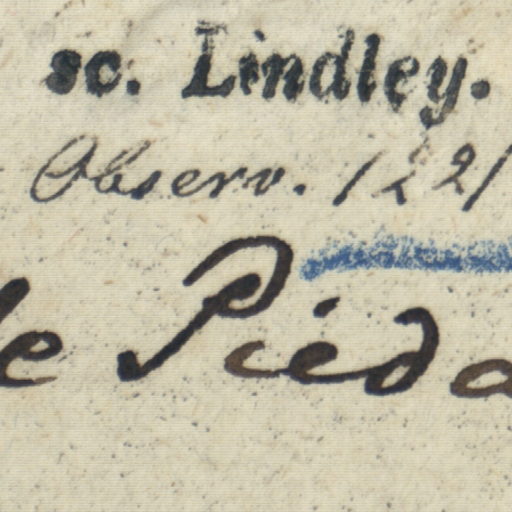 sc. Lindley.
Observ. 1221
le Pieda